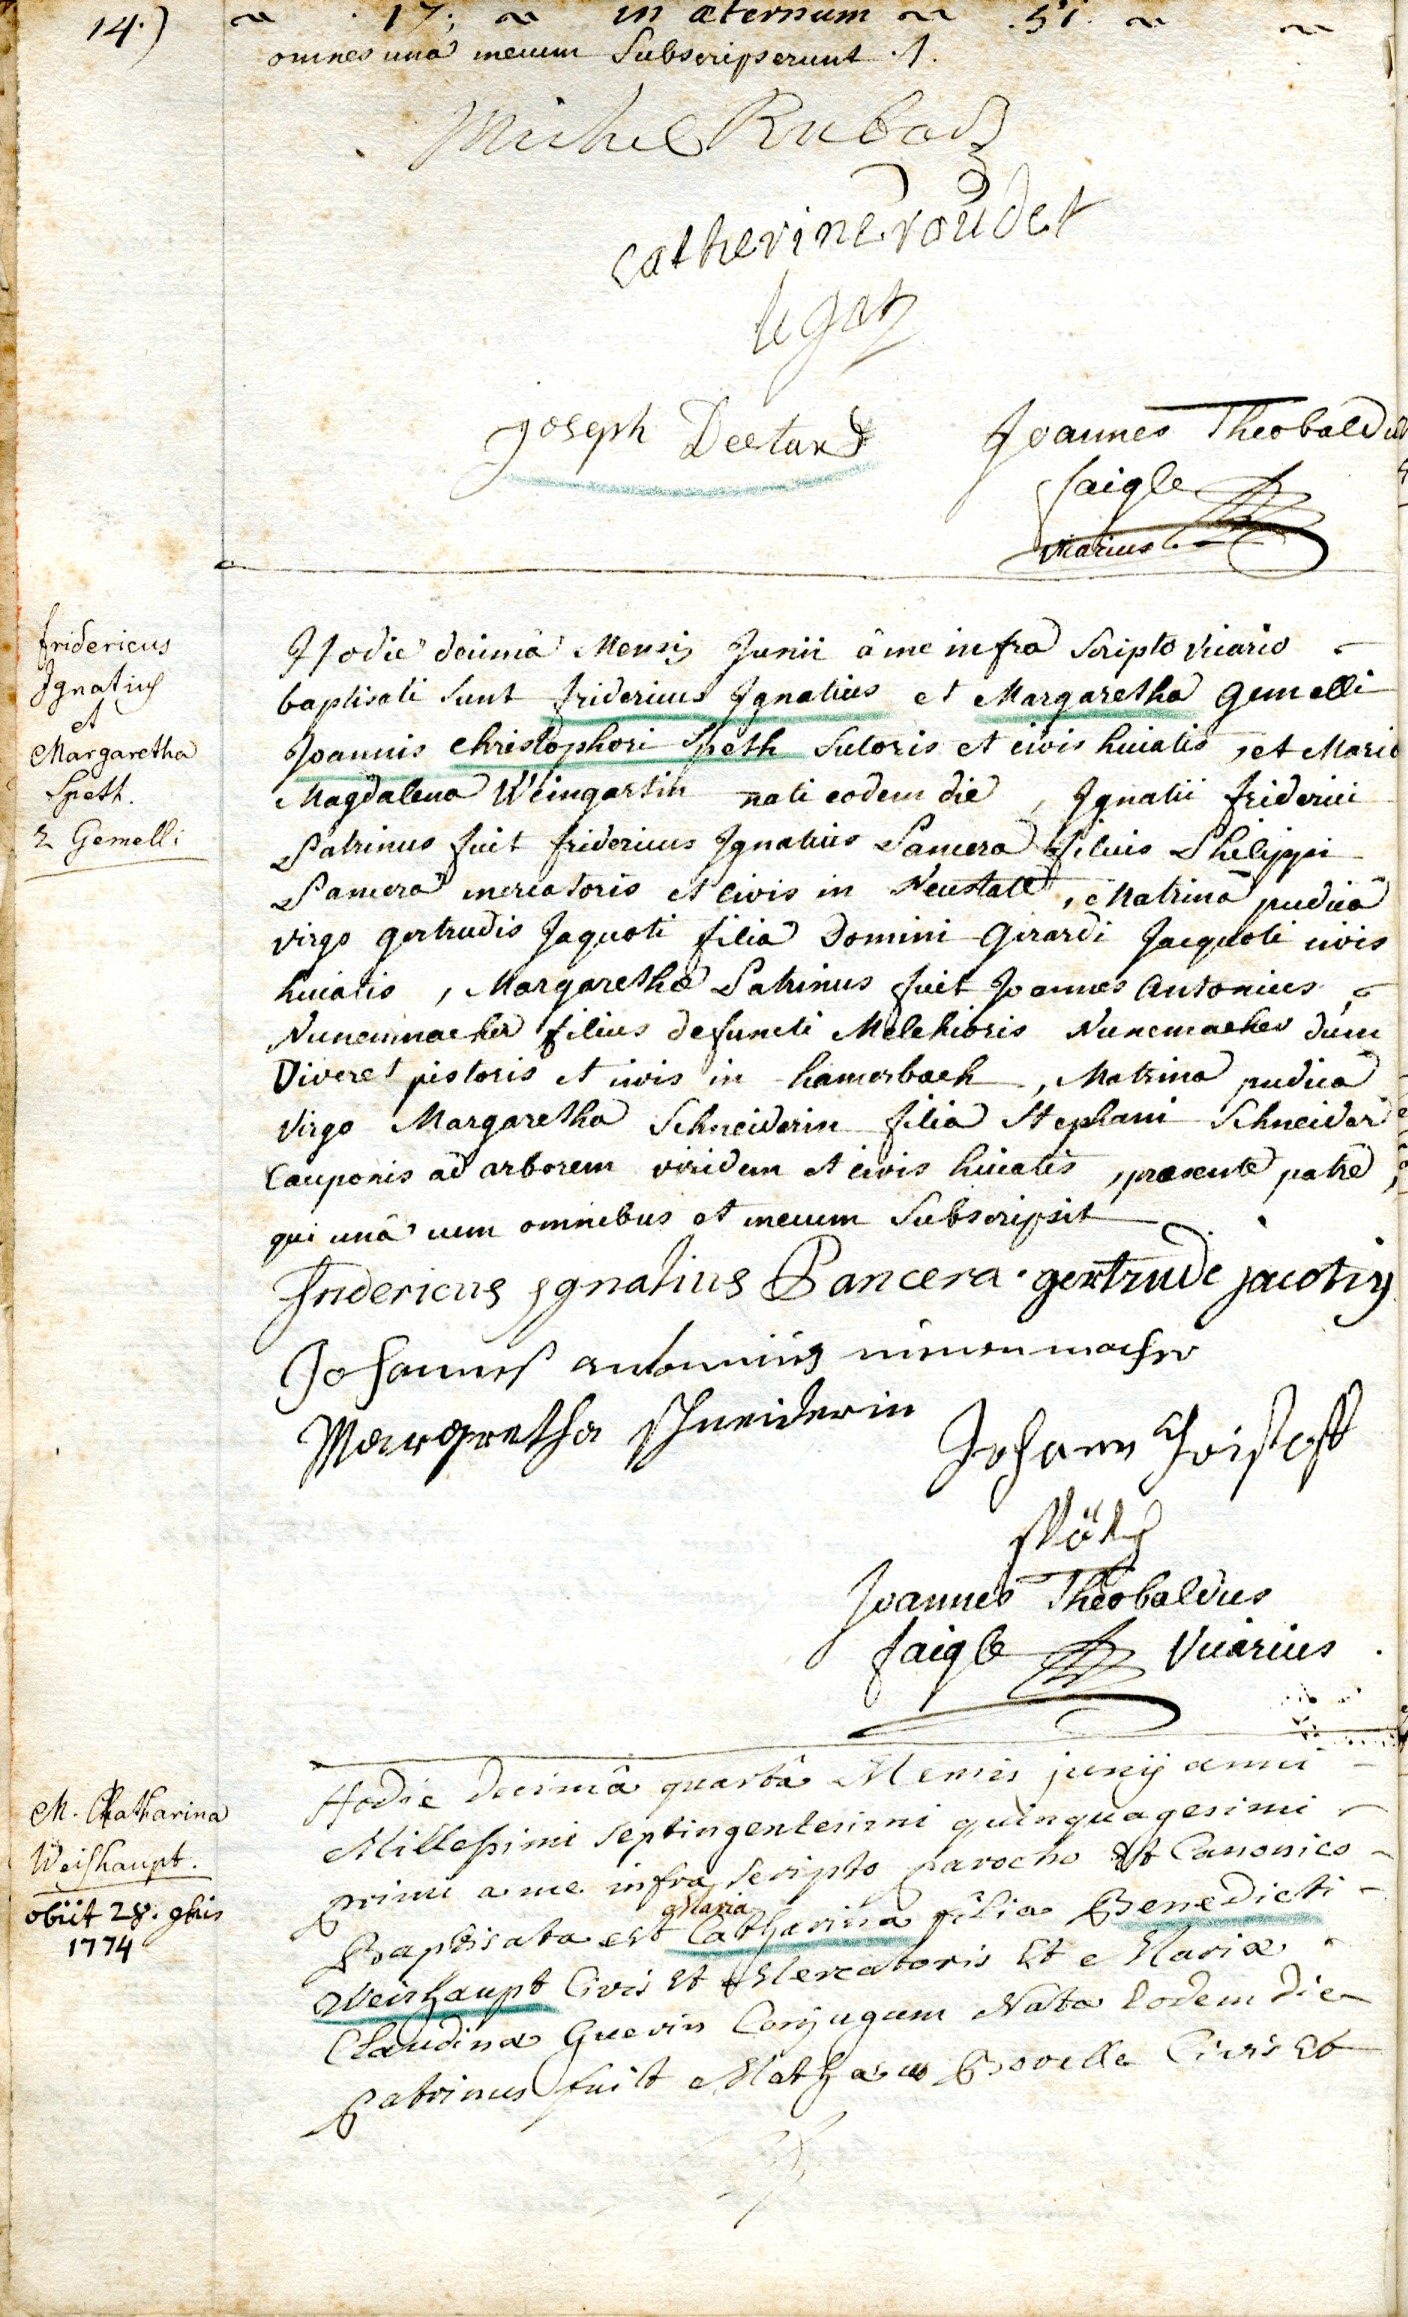 14.) ~ 17; ~ in æternum ~ .51. ~ ~
omnes unâ mecum Subscripserunt ·/.
Michel Rubad
catherine roudet
legat
joseph
Joannes Theobaldus
faigle
vicarius
fridericus
Ignatius
et
Margaretha
Speth.
2 Gemelli
Hodie decimâ Mensis Junii â me infra Scripto vicario
baptisati sunt fridericus Ignatius et Margaretha gemelli
Joannis christophori Speth Sutoris et civis huiatis, et Mariæ
Magdalena Weingartin nati eodem die, Ignatii friderici
Patrinus fuit fridericus Ignatius Pancera filius Philippi
Pancera mercatoris et civis in Neustatt, Matrina pudica
virgo gertrudis Jaquoti filia Domini Girardi Jacquoti civis
huiatis, Margarethæ Patrinus fuit Joannes Antonius
Nunenmacher filius defuncti Melchioris Nunenmacher dum
Viveret pistoris et civis in hamersbach, Matrina pudica
virgo Margaretha Schneiderin filia Stephani Schneider
Cauponis ad arborem viridem et civis huiatis, præsente patre,
qui unâ cum omnibus et mecum Subscripsit
Fridericus ignatius Pancera. gertrude jacotin
Johannes antonius nunenmacher
Margretha schneiderin
Johann Christoff
Spöth
Joannes Theobaldus
faigle Vicarius.
M. Catharina
Weishaupt.
obiit 28. 9bris
1774
Hodie decimâ quartâ Mensis junij anni
Millessimi septingentesimi quinquagesimi
primi a me infra scripto parocho et Canonico
Baptisata est Maria Catharina filia Benedicti
Weishaupt Civis et Mercatoris Et Mariæ
Claudina Guerin Conjugum Nata Eodem die
patrinus fuit Mathæus Borelle Civis Et